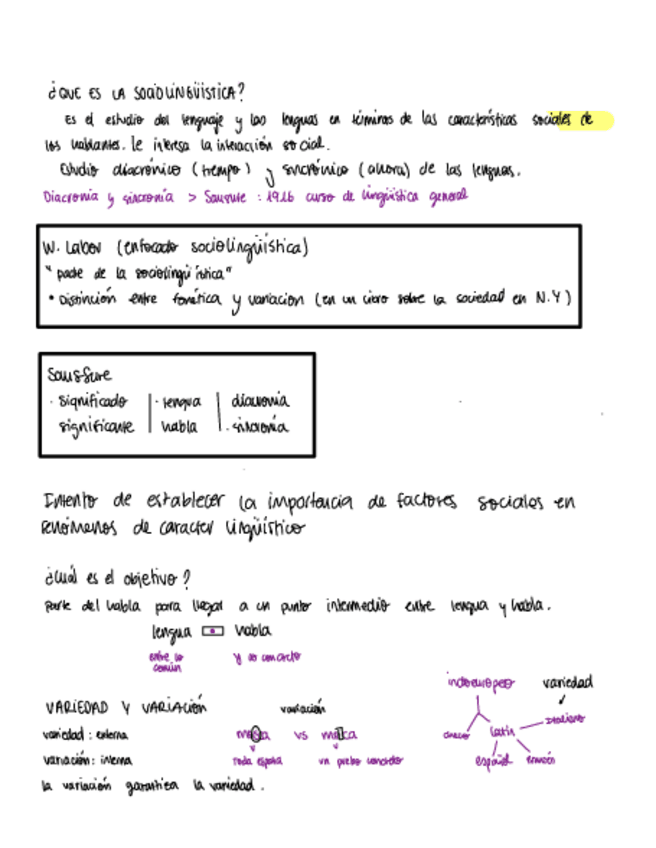 ¿QUE ES LA SOCIOLINGÜISTICA?
Es el estudio del lenguaje y las lenguas en términos de las características sociales de
los hablantes. Le interesa la interacción social.
Estudio diacrónico (tiempo) y sincrónico (ahora) de las lenguas.
Diacronia y sincronía > Sausure : 1916 curso de lingüística general
W. Labov (enfocado sociolingüística)
"padre de la sociolingüística"
• Distinción entre fonética y variacion (en un libro sobre la sociedad en N.Y)
Saussure
· significado | · lengua | diacronia
significante | habla | · sincronía
Intento de establecer la importancia de factores sociales en
fenómenos de caracter lingüístico
¿Cuál es el objetivo?
Parte del habla para llegar a un punto intermedio entre lengua y habla.
lengua habla
entre lo común
y lo concreto
indoeuropeo variedad
VARIEDAD Y VARIACIÓN variación
Italiano
variedad : externa vs
latín
variación : interna toda españa un pueblo concreto
español francés
la variación garantiza la variedad.